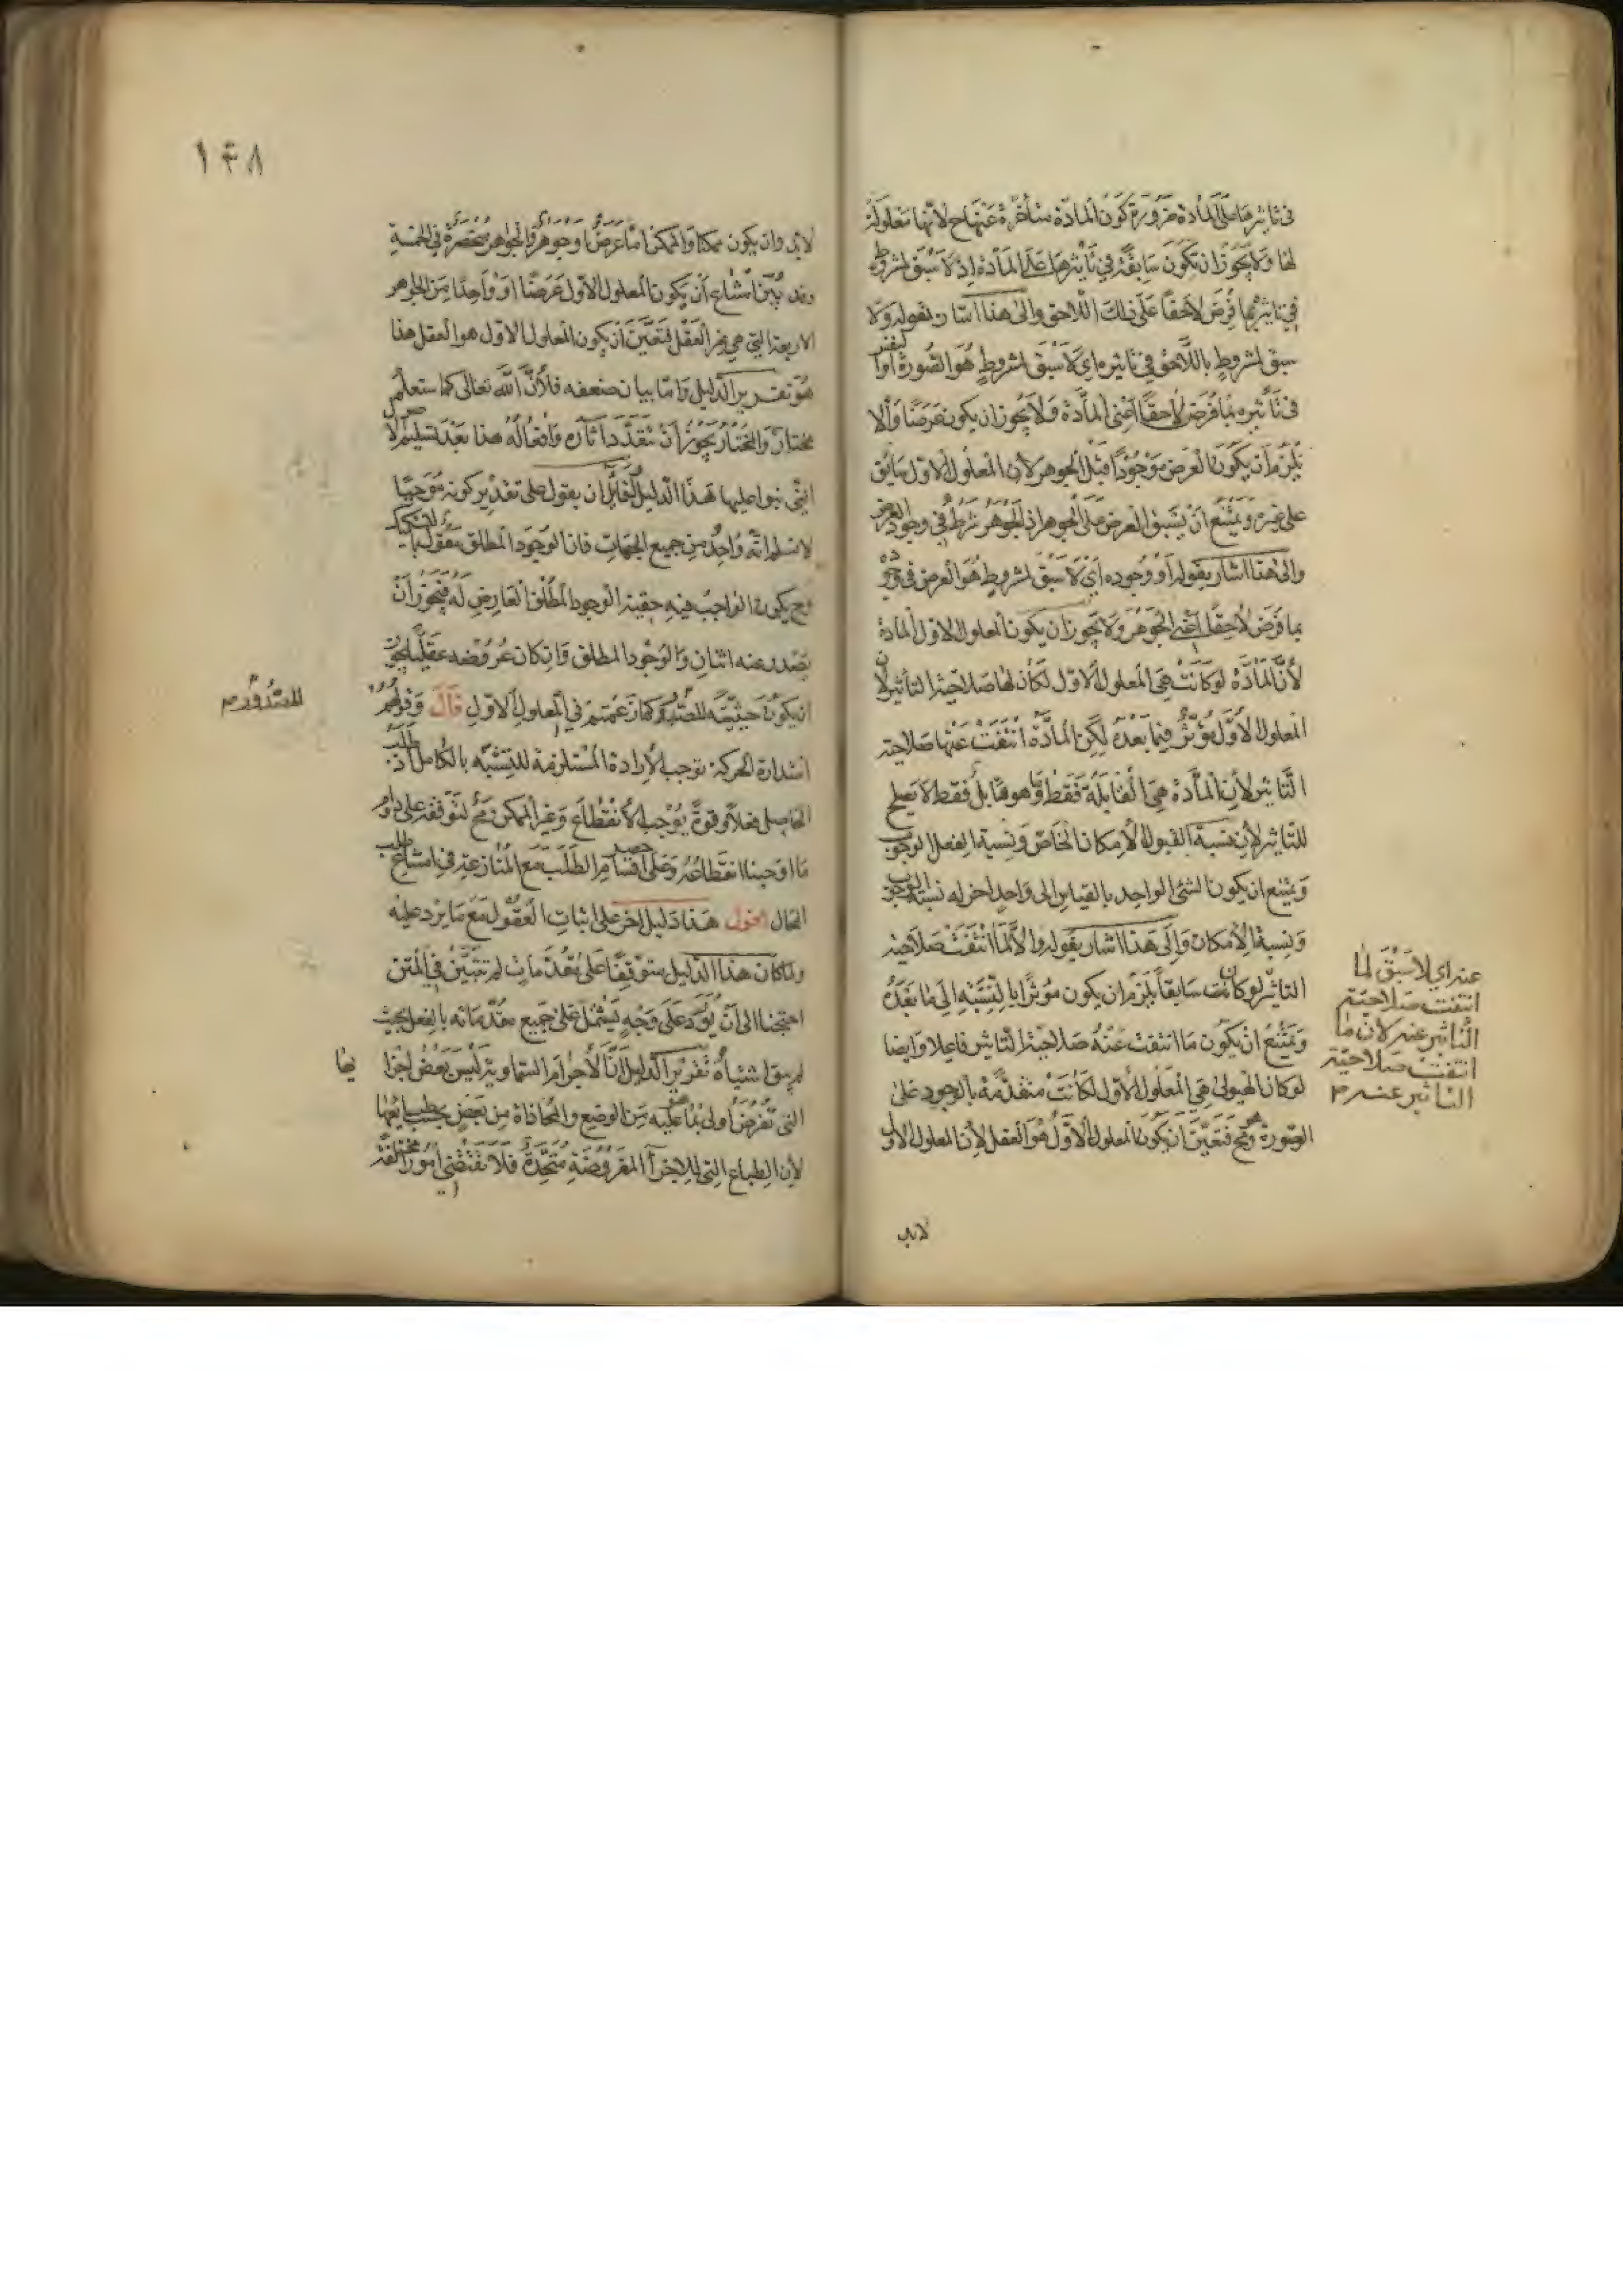 في تاثيرها على المادة ضرورة كون المادة متأخرة عنها ح لانها معلولة
لها ولا يجوز ان يكون سابقة في تأثيرها على المادة اذ لا سبق لمشروط
في تاثيرها فرض لاحقا على ذلك اللاحق والى هذا اشار بقوله ولا
سبق لمشروط باللاحق في تاثيره اي لا سبق لمشروط هو الصورة او النفس
في تأثيره بما فرض لاحقا اعني المادة ولا يجوز ان يكون عرضا والا
يلزم أن يكون العرض موجودا قبل الجوهر لان المعلول الاول سابق
على غيره ويمتنع ان يسبق العرض على الجوهر اذ الجوهر شرط في وجود العرض
والى هذا اشار بقوله أو وجوده أي لا سبق لمشروط هو العرض في وجوده
بما فرض لاحقا اعني الجوهر ولا يجوز ان يكون المعلول الاول المادة
لأن المادة لو كانت هي المعلول الاول لكان لها صلاحية التأثير لان
المعلول الاول مؤثر فيما بعده لكن المادة انتفت عنها صلاحية
التاثير لأن المادة هي القابلة فقط وما هو قابل فقط لا يصلح
للتاثير لأن نسبة القبول الامكان الخاص ونسبة الفعل الوجوب
ويمتنع ان يكون الشئ الواحد بالقياس الى واحد اخر له نسبة الوجوب
ونسبة الامكان والى هذا اشار بقوله والا لما انتفت صلاحية
التاثير لو كانت سابقا يلزم ان يكون مؤثرا بالنسبة الى ما بعده
ويمتنع ان يكون ما انتفت عنه صلاحية التاثير فاعلا وايضا
لو كان الهيولى هي المعلول الاول لكانت متقدمة بالوجود على
الصورة وح فتعين ان يكون المعلول الاول هو العقل لأن المعلول الاول
عنه اي لا سبق لما
انتفت صلاحية
التاثير عنه لان ما
انتفت صلاحية
التاثير عنه م
لابد
١٤٨
لابد وان يكون ممكنا والممكن اما عرض او جوهر والجواهر منحصرة في الخمسة
وقد بين امتناع أن يكون المعلول الاول عرضا او واحدا من الجواهر
الاربعة التي هي غير العقل فتعين ان يكون المعلول الاول هو العقل هذا
هو تقرير الدليل واما بيان ضعفه فلأن الله تعالى كما ستعلم
مختار والمختار يجوز أن تتعدد آثاره وافعاله هذا بعد تسليم الاصول
التي بنوا عليها هذا الدليل لقائل ان يقول على تقدير كونه موجبا
لا نسلم انه واحد من جميع الجهات فان الوجود المطلق مقول بالتشكيك
فح يكون الواجب فيه حقيقة الوجود المطلق العارض له فيجوز أن
يصدر عنه اثنان والوجود المطلق وان كان عروضه عقليا يجوز
ان يكون حيثية للصدور كما زعمتم في المعلول الاول قال وقولهم
استدارة الحركة توجب الارادة المستلزمة للتشبه بالكامل اذ طلب
الحاصل فعلا او قوة يوجب الانقطاع وغير الممكن مح لتوقفه على دوام
ما اوجبنا انقطاعه وعلى حصر اقسام الطلب مع المنازعة في امتناع طلب
المحال اقول هذا دليل اخر على اثبات العقول مع ما يرد عليه
ولما كان هذا الدليل متوقفا على مقدمات لم تتبين في المتن
احتجنا الى أن نورد على وجه يشتمل على جميع مقدماته بالفعل بحيث
لم يبق اشتباه تقرير الدليل ان الأجرام السماوية ليس بعض اجزائها
التي تفرض أولى بما هو عليه من الوضع والمحاذاة من بعض بحسب طبايعها
لأن الطباع التي للاجزاء المفروضة متحدة فلا تقتضي امورا مختلفة
للصدور م